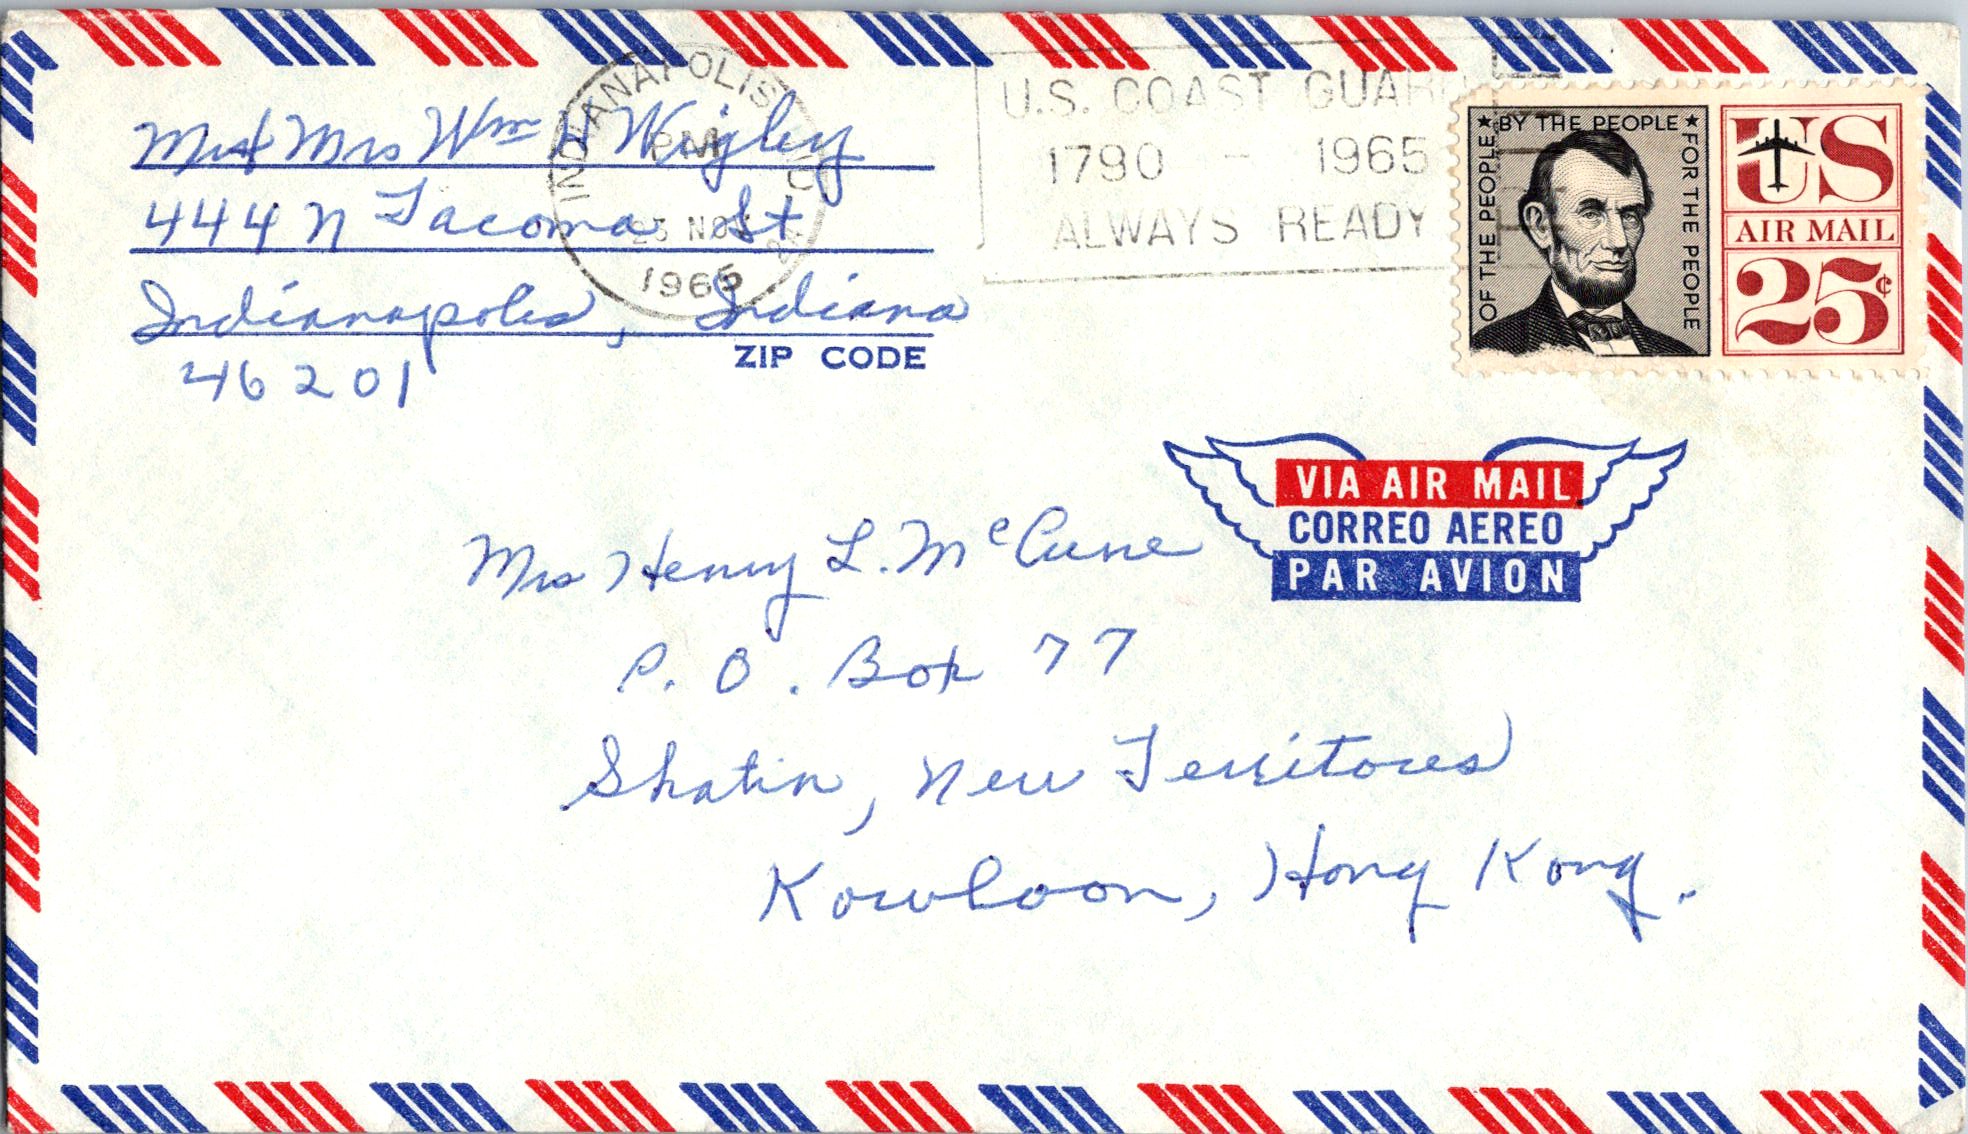 Mr & Mrs Wm H Wigley
444 N Tacoma St
Indianapolis, Indiana
ZIP CODE
46201
INDIANAPOLIS, IND
PM
23 NOV
1965
U.S. COAST GUARD
1790 - 1965
ALWAYS READY
OF THE PEOPLE ★ BY THE PEOPLE ★ FOR THE PEOPLE
US
AIR MAIL
25¢
VIA AIR MAIL
CORREO AEREO
PAR AVION
Mrs Henry L. McCune
P. O. Box 77
Shatin, New Territores
Kowloon, Hong Kong.